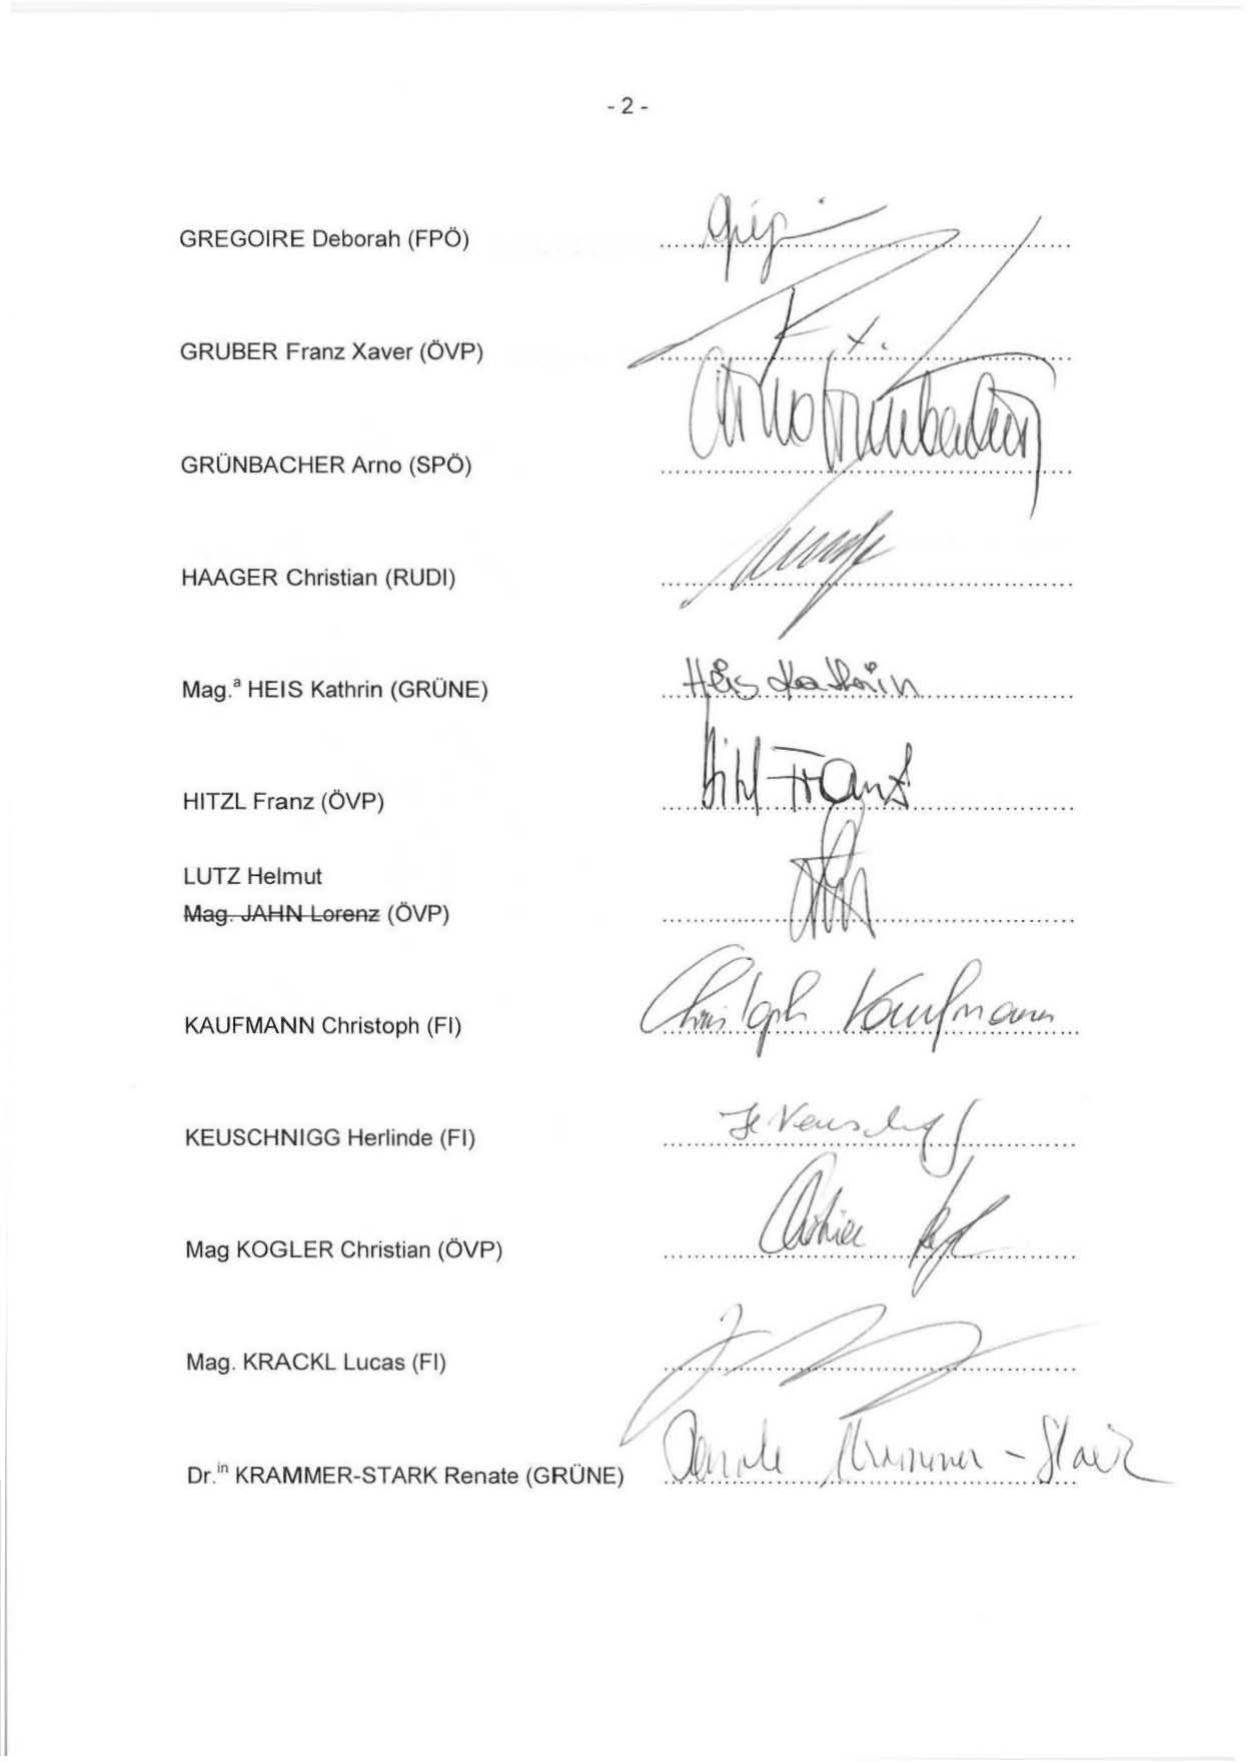 - 2 -
GREGOIRE Deborah (FPÖ)
GRUBER Franz Xaver (ÖVP)
F. X.
GRÜNBACHER Arno (SPÖ) Arno Grünbacher
HAAGER Christian (RUDI)
Mag.ª HEIS Kathrin (GRÜNE) Heis Kathrin
HITZL Franz (ÖVP) Hitzl Franz
LUTZ Helmut
Mag. JAHN Lorenz (ÖVP)
KAUFMANN Christoph (FI) Christoph Kaufmann
KEUSCHNIGG Herlinde (FI)
Mag KOGLER Christian (ÖVP)
Mag. KRACKL Lucas (FI)
Dr.ⁱⁿ KRAMMER-STARK Renate (GRÜNE) Renate Krammer-Stark